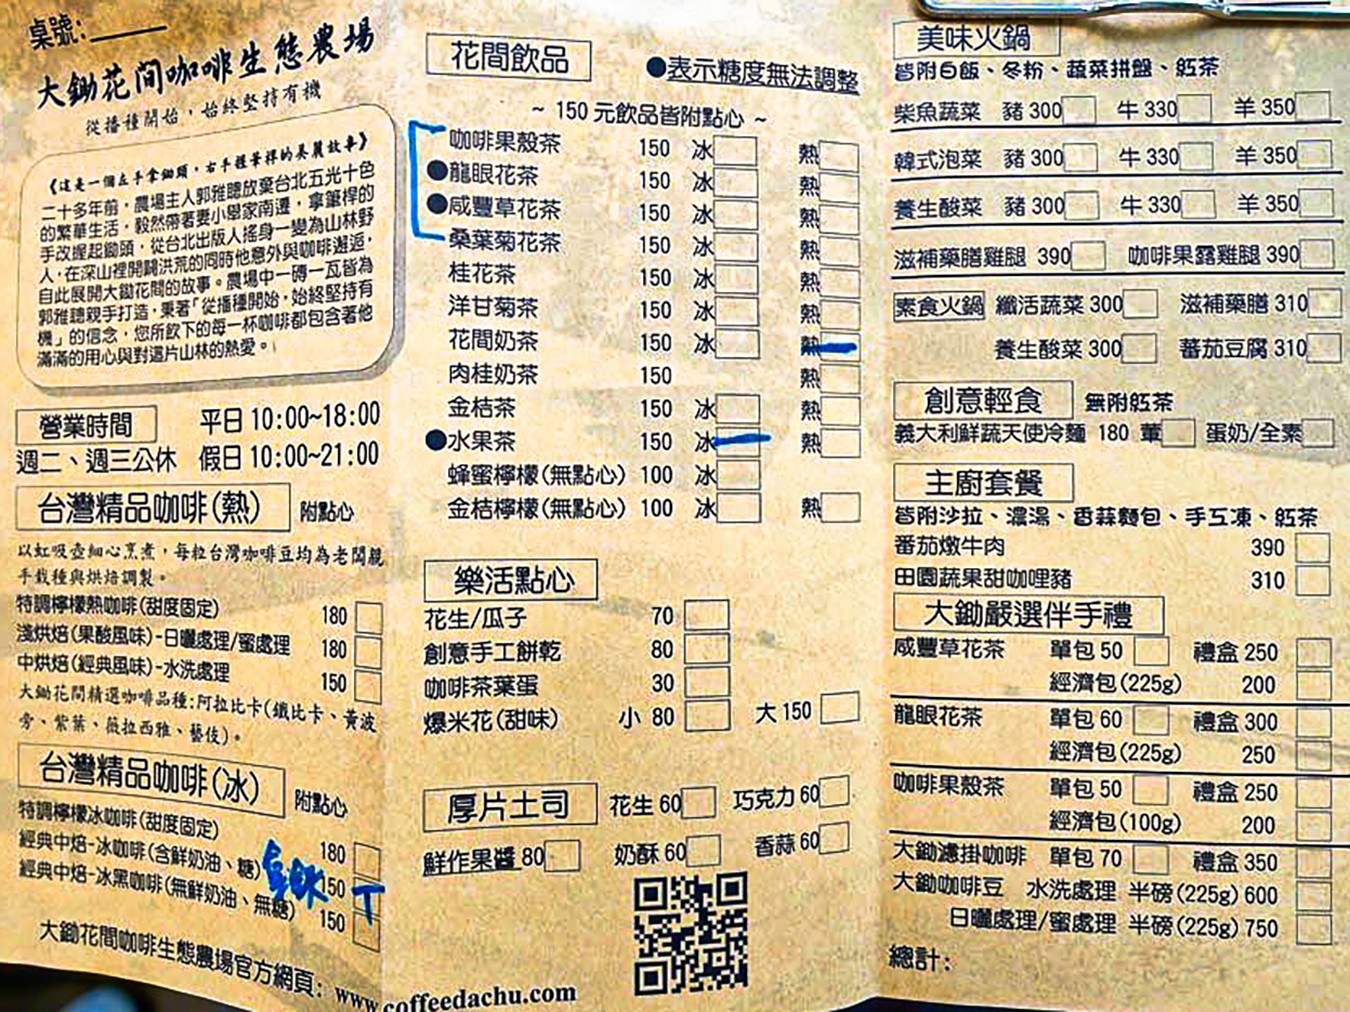 桌號:
大鋤花間咖啡生態農場
從播種開始，始終堅持有機
《這是一個左手拿鋤頭，右手握筆桿的美麗故事》
二十多年前，農場主人郭雅聰放棄台北五光十色
的繁華生活，毅然帶著妻小舉家南遷，拿筆桿的
手改握起鋤頭，從台北出版人搖身一變為山林野
人，在深山裡開闢洪荒的同時他意外與咖啡邂逅，
自此展開大鋤花間的故事。農場中一磚一瓦皆為
郭雅聰親手打造，秉著「從播種開始，始終堅持有
機」的信念，您所飲下的每一杯咖啡都包含著他
滿滿的用心與對這片山林的熱愛。
營業時間 平日10:00~18:00
週二、週三公休 假日10:00~21:00
台灣精品咖啡(熱) 附點心
以虹吸壺細心烹煮，每粒台灣咖啡豆均為老闆親
手栽種與烘焙調製。
特調檸檬熱咖啡(甜度固定) 180
淺烘焙(果酸風味)-日曬處理/蜜處理 180
中烘焙(經典風味)-水洗處理 150
大鋤花間精選咖啡品種:阿拉比卡(鐵比卡、黃波
旁、紫葉、薇拉西雅、藝伎)。
台灣精品咖啡(冰) 附點心
特調檸檬冰咖啡(甜度固定) 180
經典中焙-冰咖啡(含鮮奶油、糖) 150
經典中焙-冰黑咖啡(無鮮奶油、無糖) 150
大鋤花間咖啡生態農場官方網頁: www.coffeedachu.com
花間飲品 ●表示糖度無法調整
~ 150 元飲品皆附點心 ~
咖啡果殼茶 150 冰 熱
●龍眼花茶 150 冰 熱
●咸豐草花茶 150 冰 熱
桑葉菊花茶 150 冰 熱
桂花茶 150 冰 熱
洋甘菊茶 150 冰 熱
花間奶茶 150 冰 熱
肉桂奶茶 150 熱
金桔茶 150 冰 熱
●水果茶 150 冰 熱
蜂蜜檸檬(無點心) 100 冰
金桔檸檬(無點心) 100 冰 熱
樂活點心
花生/瓜子 70
創意手工餅乾 80
咖啡茶葉蛋 30
爆米花(甜味) 小 80 大 150
厚片土司 花生 60 巧克力 60
鮮作果醬 80 奶酥 60 香蒜 60
美味火鍋
皆附白飯、冬粉、蔬菜拼盤、紅茶
柴魚蔬菜 豬 300 牛 330 羊 350
韓式泡菜 豬 300 牛 330 羊 350
養生酸菜 豬 300 牛 330 羊 350
滋補藥膳雞腿 390 咖啡果露雞腿 390
素食火鍋 纖活蔬菜 300 滋補藥膳 310
養生酸菜 300 蕃茄豆腐 310
創意輕食 無附紅茶
義大利鮮蔬天使冷麵 180 葷 蛋奶/全素
主廚套餐
皆附沙拉、濃湯、香蒜麵包、手工凍、紅茶
番茄燉牛肉 390
田園蔬果甜咖哩豬 310
大鋤嚴選伴手禮
咸豐草花茶 單包 50 禮盒 250
經濟包(225g) 200
龍眼花茶 單包 60 禮盒 300
經濟包(225g) 250
咖啡果殼茶 單包 50 禮盒 250
經濟包(100g) 200
大鋤濾掛咖啡 單包 70 禮盒 350
大鋤咖啡豆 水洗處理 半磅(225g) 600
日曬處理/蜜處理 半磅(225g) 750
總計: